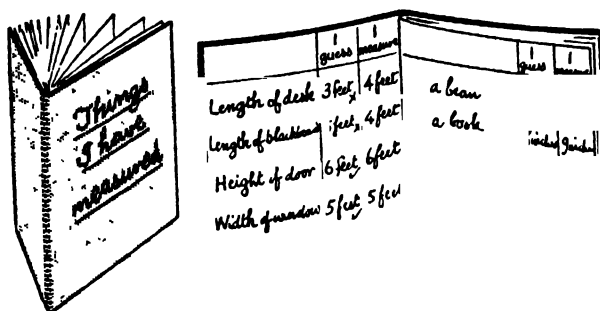 Things
I have
measured
I guess I measure
Length of desk 3 feet 4 feet
Length of blackboard feet 4 feet
Height of door 6 feet 6 feet
Width of window 5 feet 5 feet
I guess I
a bean
a book